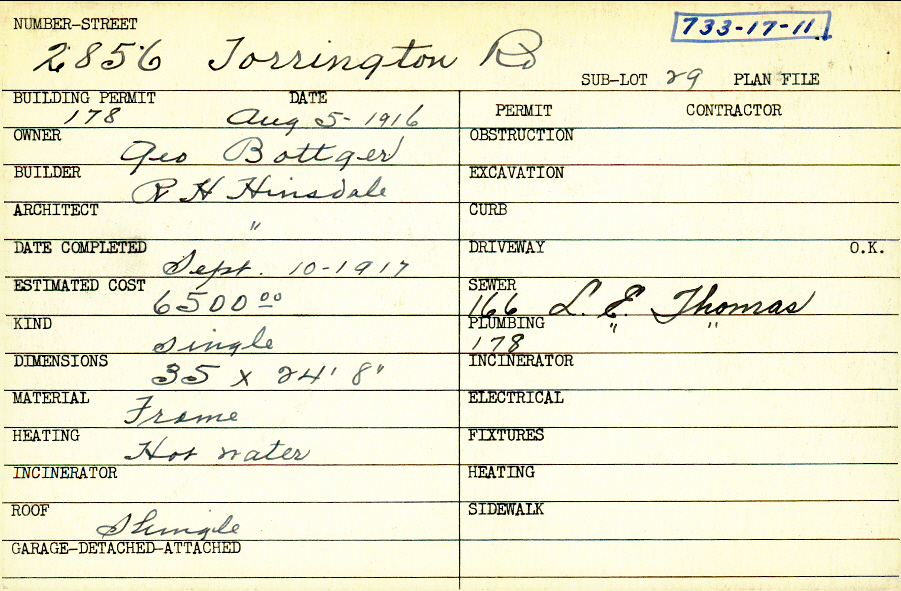 NUMBER-STREET
733-17-11
2856 Torrington Rd
SUB-LOT 29 PLAN FILE
BUILDING PERMIT DATE
178 Aug 5-1916
OWNER
Geo Bottger
BUILDER
R H Hinsdale
ARCHITECT
"
DATE COMPLETED
Sept. 10-1917
ESTIMATED COST
6500.00
KIND
Single
DIMENSIONS
35 x 24' 8"
MATERIAL
Frame
HEATING
Hot water
INCINERATOR
ROOF
Shingle
GARAGE-DETACHED-ATTACHED
PERMIT CONTRACTOR
OBSTRUCTION
EXCAVATION
CURB
DRIVEWAY O.K.
SEWER
166 L. E. Thomas
PLUMBING " "
178
INCINERATOR
ELECTRICAL
FIXTURES
HEATING
SIDEWALK